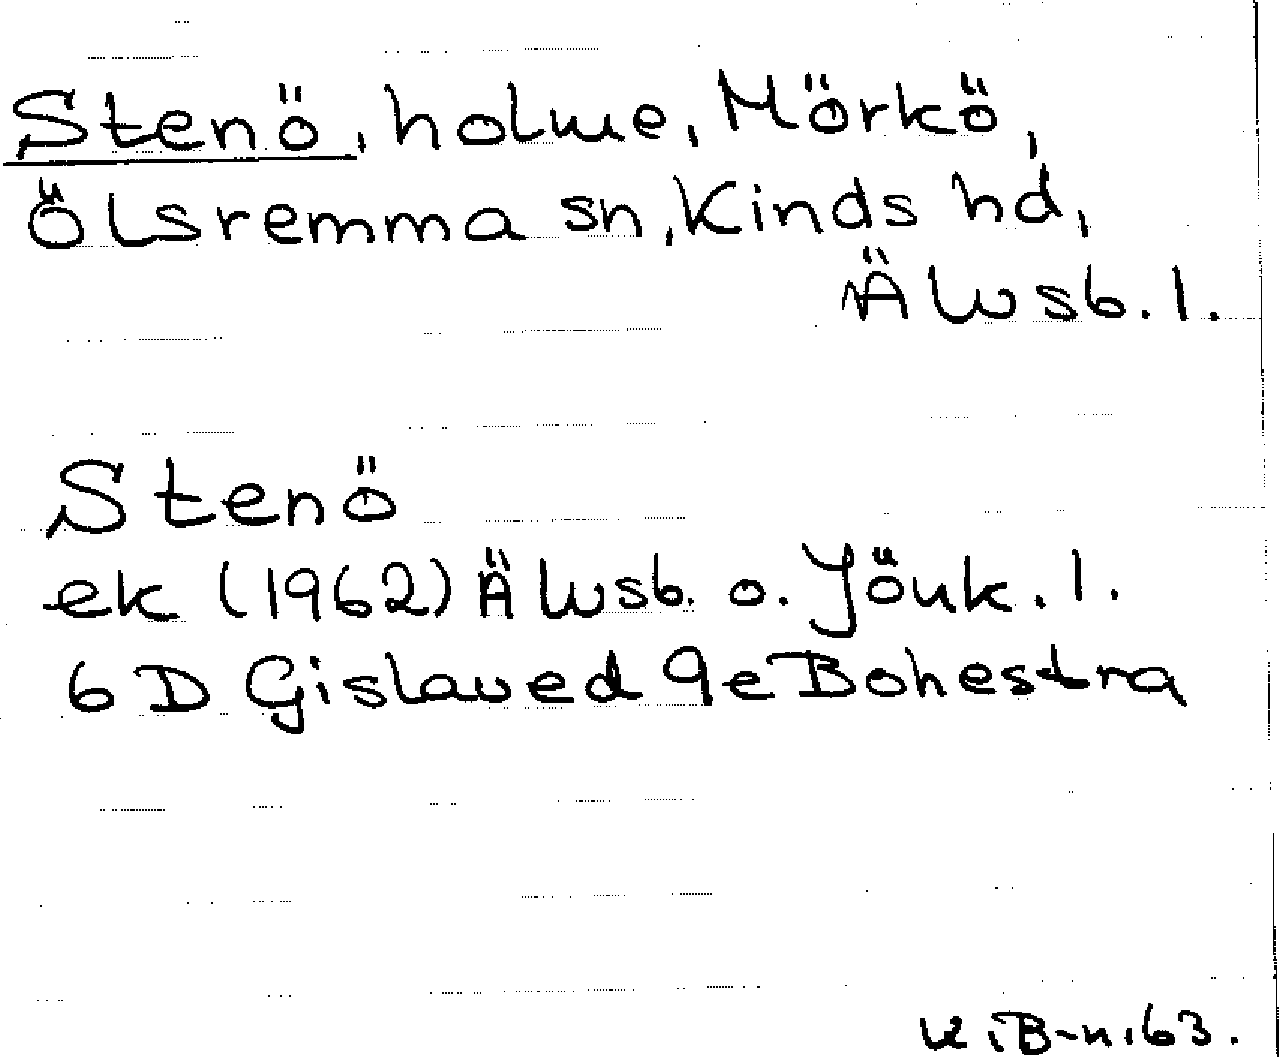 Stenö, holme, Mörkö,
Ölsremma sn, Kinds hd,
Älvsb. l.
Stenö
ek (1962) Älvsb. o. Jönk. l.
6 D Gislaved 9e Bohestra
K.B-n. 63.